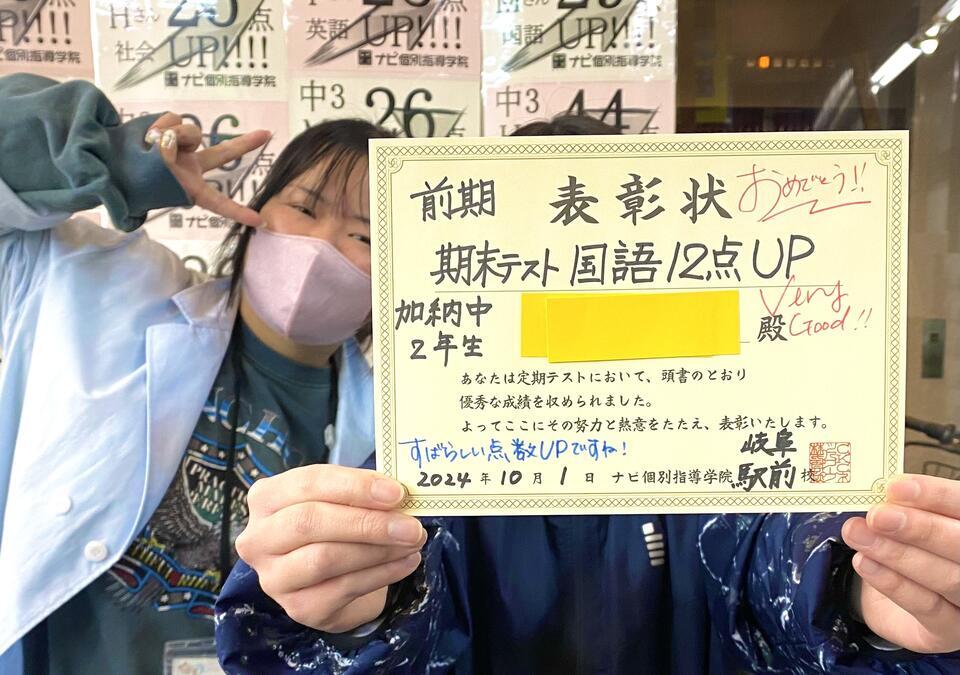 Hさん 25点
社会 UP!!!!
ナビ個別指導学院
英語 UP!!!!
ナビ個別指導学院
国語 UP!!!!
ナビ個別指導学院
中3 26
中3 44
前期 表彰状 おめでとう!!
期末テスト 国語 12点 UP
加納中
2年生
殿
Very
Good!!
あなたは定期テストにおいて、頭書のとおり
優秀な成績を収められました。
よってここにその努力と熱意をたたえ、表彰いたします。
すばらしい点数UPですね!
2024年10月1日 ナビ個別指導学院 岐阜駅前校